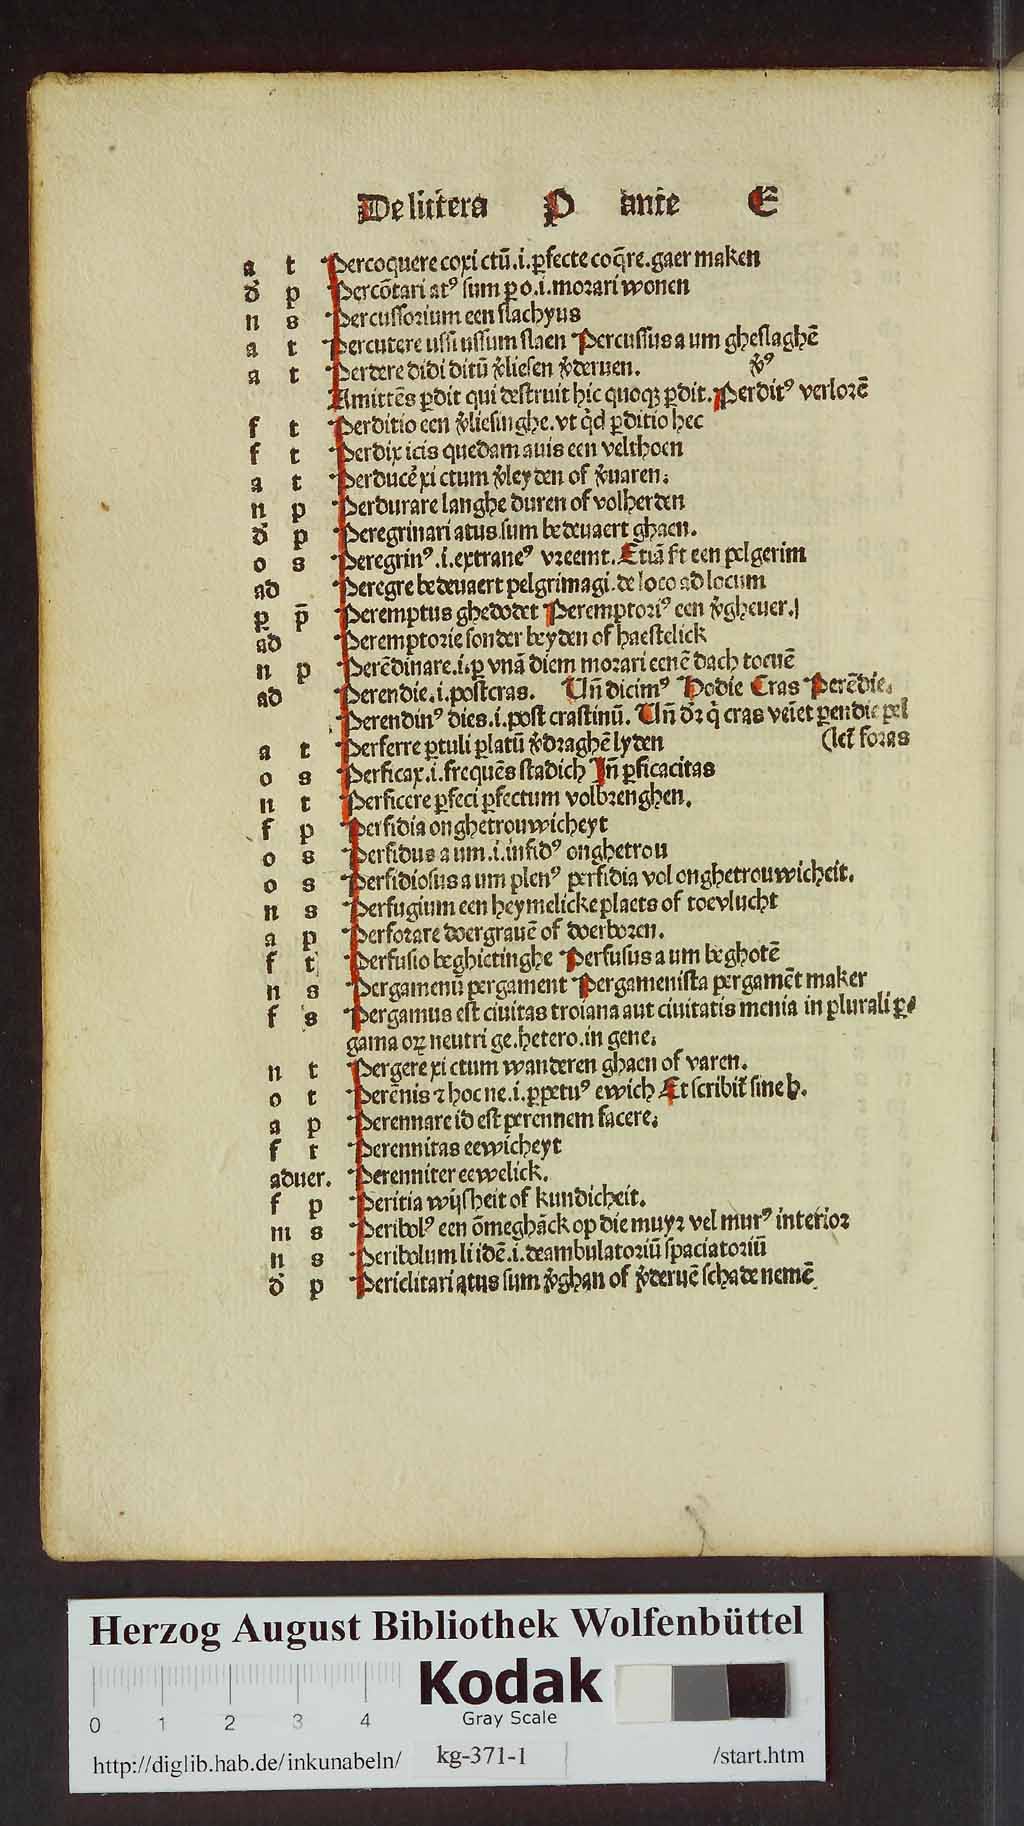 De littera P ante E
a t Percoquere coxi ctū .i. ꝑfecte coq̄re. gaer maken
ď p Percōtari atꝰ sum ꝑ o .i. morari wonen
n s Percussorium een slachyus
a t Percutere ussi ussum slaen Percussus a um gheslaghē
a t Perdere didi ditū ꝟliesen ꝟderuen. ꝟꝰ
Amittēs ꝑdit qui destruit hic quoqꝫ ꝑdit. Perditꝰ verlorē
f t Perditio een ꝟliesinghe. vt q̇d ꝑditio hec
f t Perdix icis quedam auis een velthoen
a t Perducē xi ctum ꝟleyden of ꝟuaren.
n p Perdurare langhe duren of volherden
ď p Peregrinari atus sum bedeuaert ghaen.
o s Peregrinꝰ .i. extraneꝰ vreemt. Etiā ft een pelgerim
ad Peregre bedeuaert pelgrimagi. de loco ad locum
p p̄ Peremptus ghedodet Peremptoriꝰ een ꝟgheuer.
ad Peremptorie sonder beyden of haestelick
n p Perēdinare .i. ꝑ vnā diem morari eenē dach toeuē
ad Perendie .i. postcras. Un̄ dicimꝰ Hodie Cras Perēdie.
Perendinꝰ dies .i. post crastinū. Un̄ dꝛ q̇ cras veīet ꝑendie pel
a t Perferre ꝑtuli ꝑlatū ꝟdraghē lyden (let̄ foras
o s Perficax .i. frequēs stadich In̄ ꝑficacitas
n t Perficere ꝑfeci ꝑfectum volbrenghen.
f p Perfidia onghetrouwicheyt
o s Perfidus a um .i. infidꝰ onghetrou
o s Perfidiosus a um plenꝰ perfidia vol onghetrouwicheit.
n s Perfugium een heymelicke plaets of toevlucht
a p Perforare doergrauē of doerboren.
f t Perfusio beghietinghe Perfusus a um beghotē
n s Pergamenū pergament Pergamenista pergamēt maker
f s Pergamus est ciuitas troiana aut ciuitatis menia in plurali ꝑ⸗
gama oꝝ neutri ge. hetero. in gene.
n t Pergere xi ctum wanderen ghaen of varen.
o t Perēnis ⁊ hoc ne .i. ꝑpetuꝰ ewich Et scribit̄ sine h.
a p Perennare id est perennem facere.
f t Perennitas eewicheyt
aduer. Perenniter eewelick.
f p Peritia wijsheit of kundicheit.
m s Peribolꝰ een ōmeghāck op die muyꝛ vel murꝰ interior
n s Peribolum li idē .i. deambulatoriū spaciatoriū
ď p Periclitari atus sum ꝟghan of ꝟderuē schade nemē
Herzog August Bibliothek Wolfenbüttel
Kodak
Gray Scale
0 1 2 3 4
http://diglib.hab.de/inkunabeln/ kg-371-1 /start.htm